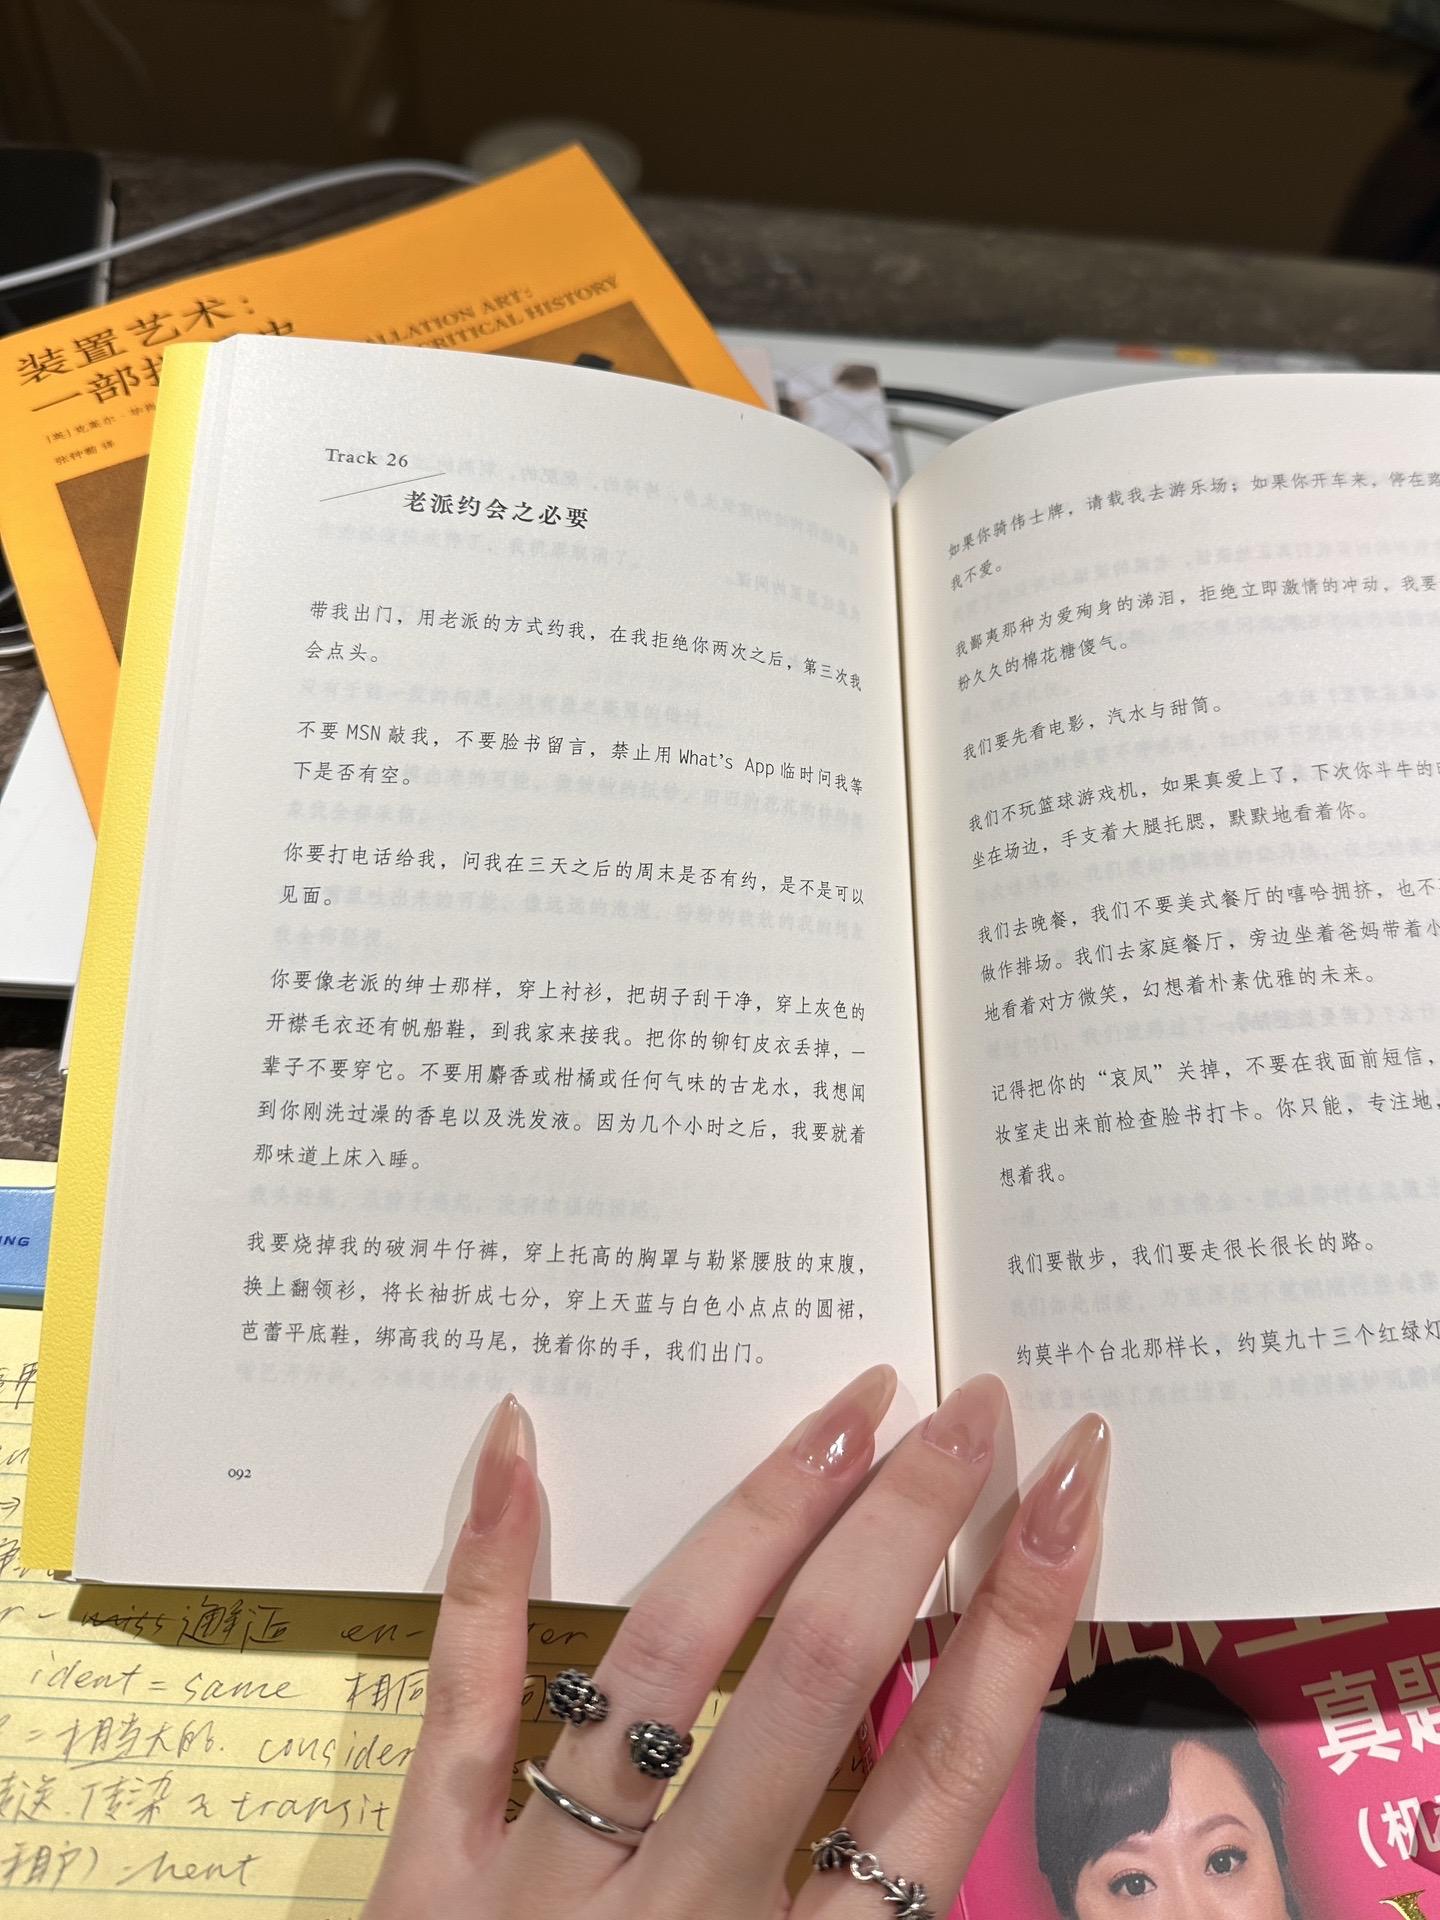 装置艺术：
一部批
ALLATION ART:
CRITICAL HISTORY
张钟萄 译
Track 26
老派约会之必要
带我出门，用老派的方式约我，在我拒绝你两次之后，第三次我
会点头。
不要 MSN 敲我，不要脸书留言，禁止用 What's App 临时问我等
下是否有空。
你要打电话给我，问我在三天之后的周末是否有约，是不是可以
见面。
你要像老派的绅士那样，穿上衬衫，把胡子刮干净，穿上灰色的
开襟毛衣还有帆船鞋，到我家来接我。把你的铆钉皮衣丢掉，一
辈子不要穿它。不要用麝香或柑橘或任何气味的古龙水，我想闻
到你刚洗过澡的香皂以及洗发液。因为几个小时之后，我要就着
那味道上床入睡。
我要烧掉我的破洞牛仔裤，穿上托高的胸罩与勒紧腰肢的束腹，
换上翻领衫，将长袖折成七分，穿上天蓝与白色小点点的圆裙，
芭蕾平底鞋，绑高我的马尾，挽着你的手，我们出门。
092
如果你骑伟士牌，请载我去游乐场；如果你开车来，停在路
我不爱。
我鄙夷那种为爱殉身的涕泪，拒绝立即激情的冲动，我要
粉久久的棉花糖傻气。
我们要先看电影，汽水与甜筒。
我们不玩篮球游戏机，如果真爱上了，下次你斗牛的时
坐在场边，手支着大腿托腮，默默地看着你。
我们去晚餐，我们不要美式餐厅的嘻哈拥挤，也不
做作排场。我们去家庭餐厅，旁边坐着爸妈带着小
地看着对方微笑，幻想着朴素优雅的未来。
记得把你的“哀凤”关掉，不要在我面前短信，
妆室走出来前检查脸书打卡。你只能，专注地，
想着我。
我们要散步，我们要走很长很长的路。
约莫半个台北那样长，约莫九十三个红绿灯
ING
miss 邂逅 en-
ident = same 相同
= 相当大的. consider
传染 transit
真题
(机